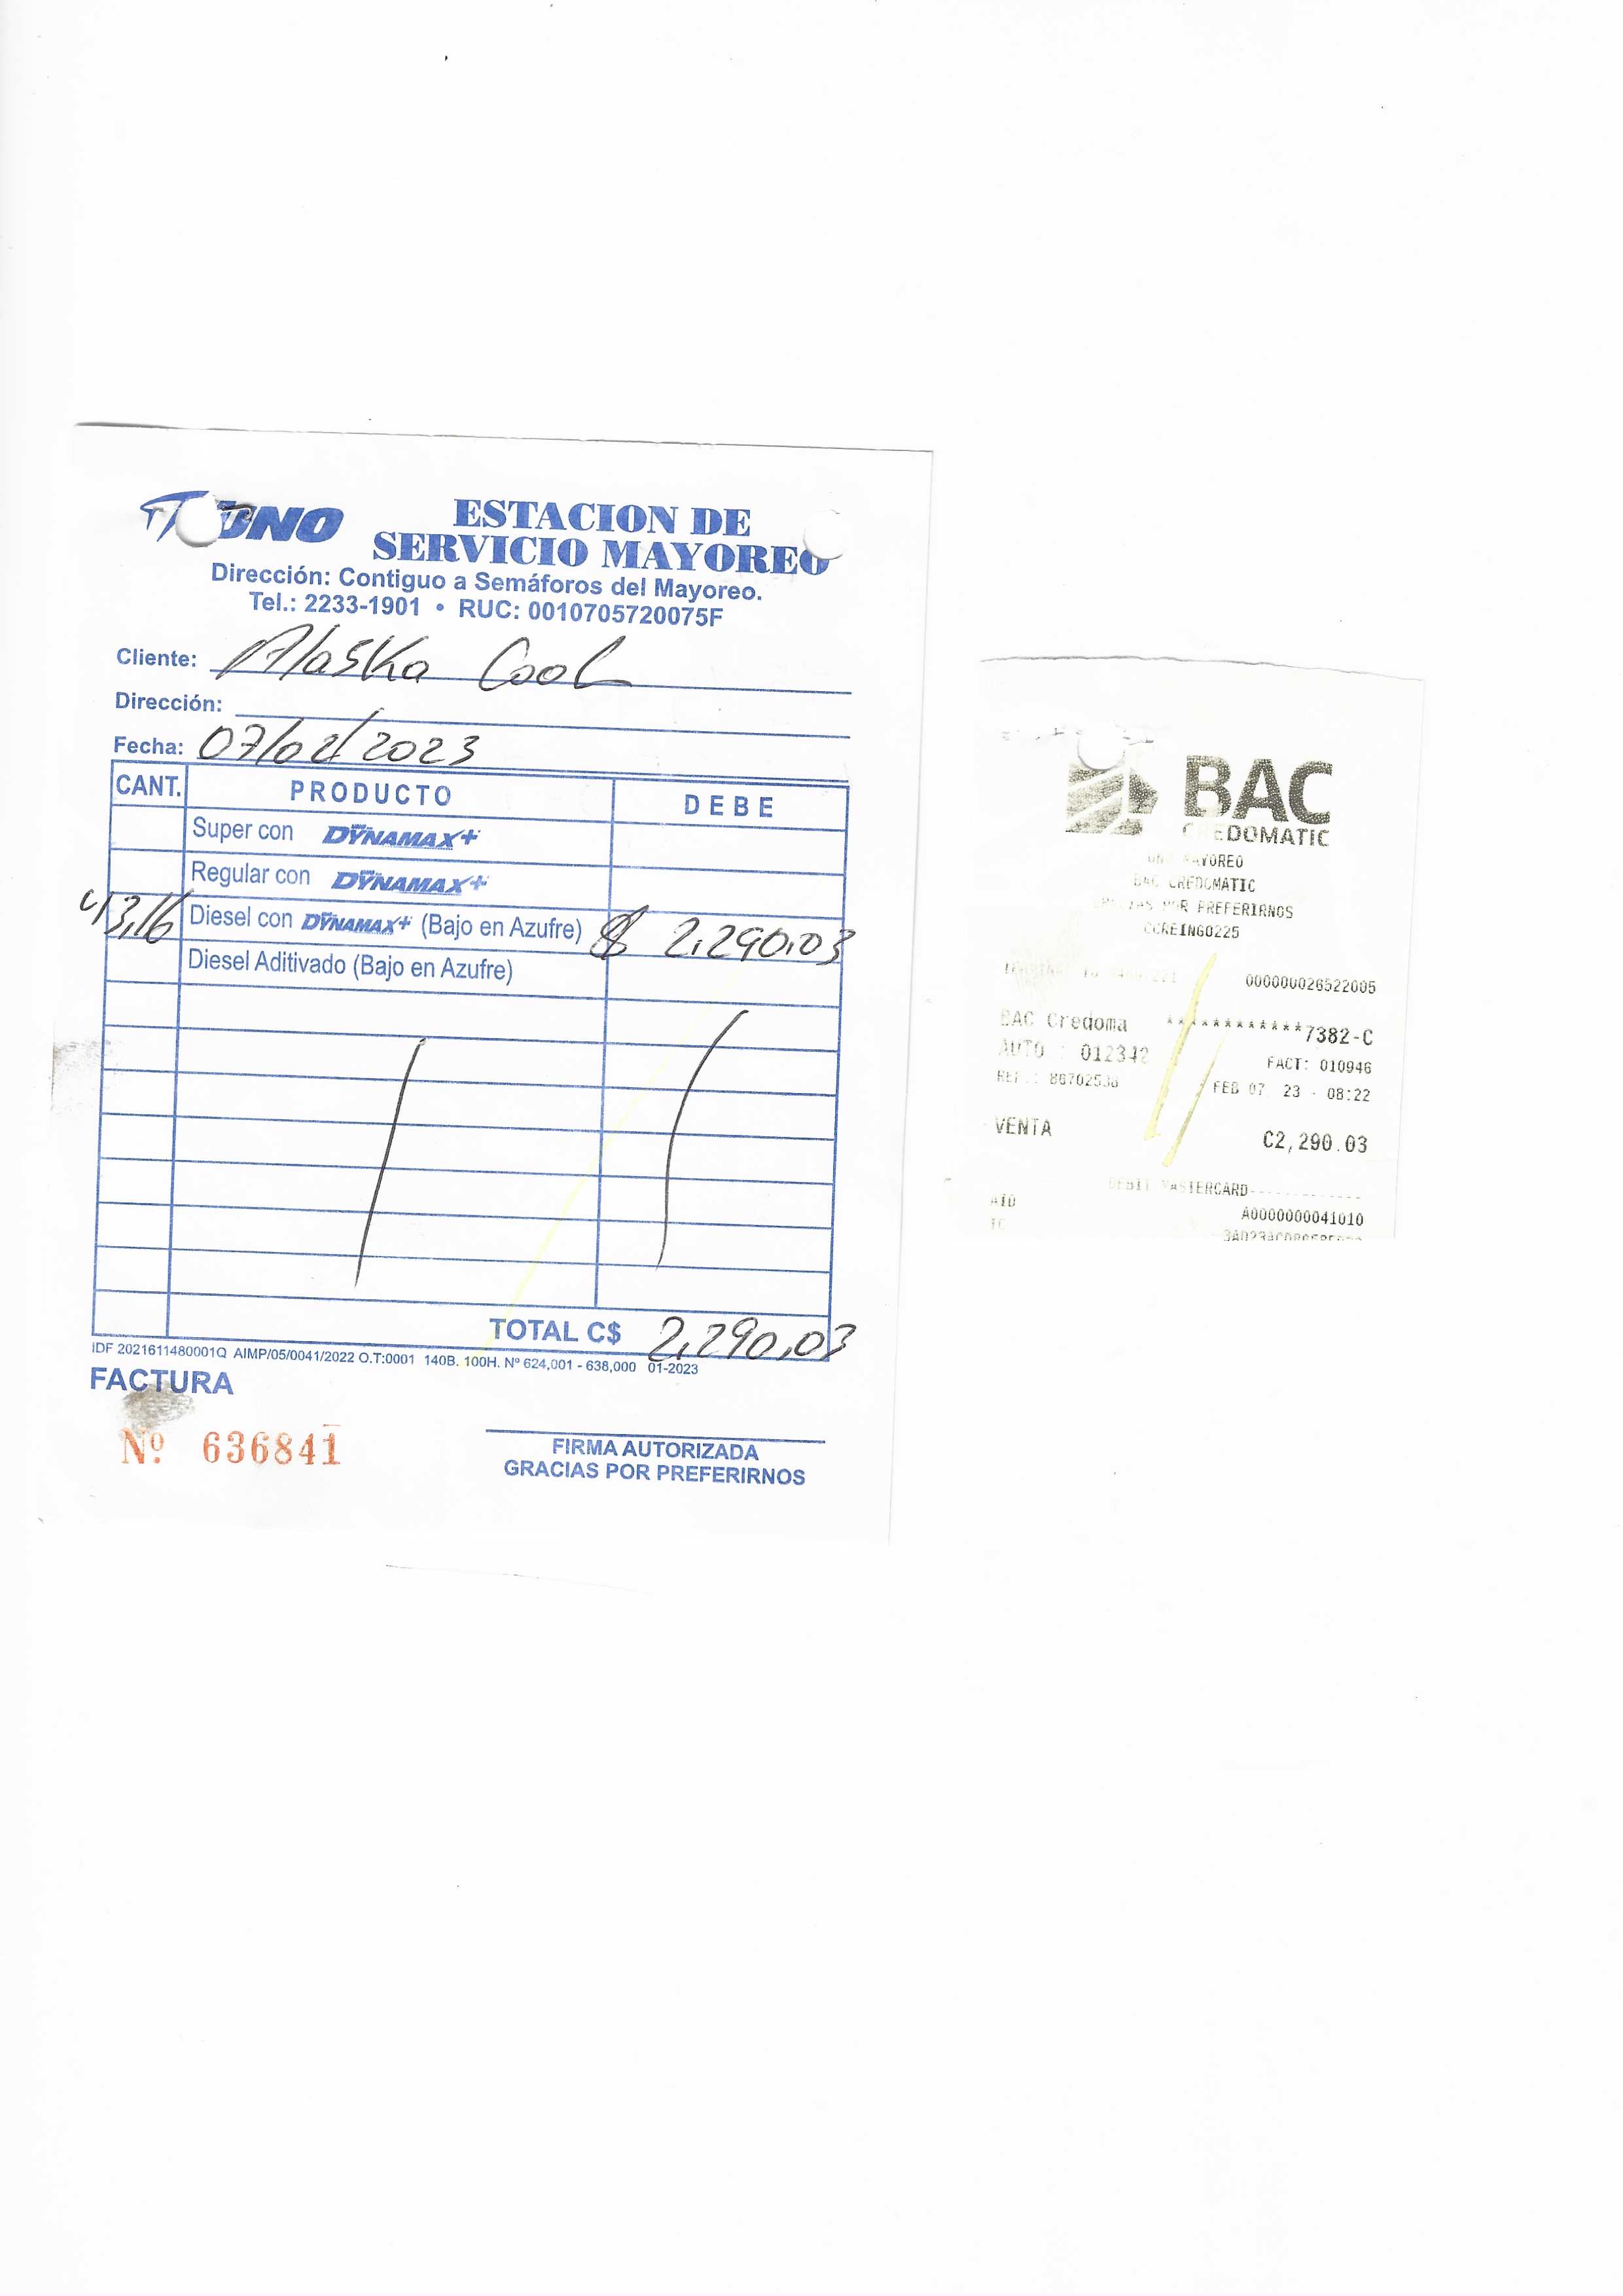 UNO
ESTACION DE
SERVICIO MAYOREO
Dirección: Contiguo a Semáforos del Mayoreo.
Tel.: 2233-1901 • RUC: 0010705720075F
Cliente: Alaska Cool
Dirección:
Fecha: 07/02/2023
CANT. PRODUCTO DEBE
Super con DYNAMAX+
Regular con DYNAMAX+
43,16 Diesel con DYNAMAX+ (Bajo en Azufre) $ 2,290.03
Diesel Aditivado (Bajo en Azufre)
TOTAL C$ 2,290,03
IDF 2021611480001Q AIMP/05/0041/2022 O.T:0001 140B. 100H. Nº 624,001 - 638,000 01-2023
FACTURA
Nº 636841
FIRMA AUTORIZADA
GRACIAS POR PREFERIRNOS
BAC
CREDOMATIC
UNO MAYOREO
BAC CREDOMATIC
GRACIAS POR PREFERIRNOS
CCREING0225
000000026522005
BAC Credoma ************7382-C
AUTO : 012342 FACT: 010946
REF.: FEB 07 23 - 08:22
VENTA C2,290.03
DEBIT MASTERCARD-------------
AID A0000000041010
TC